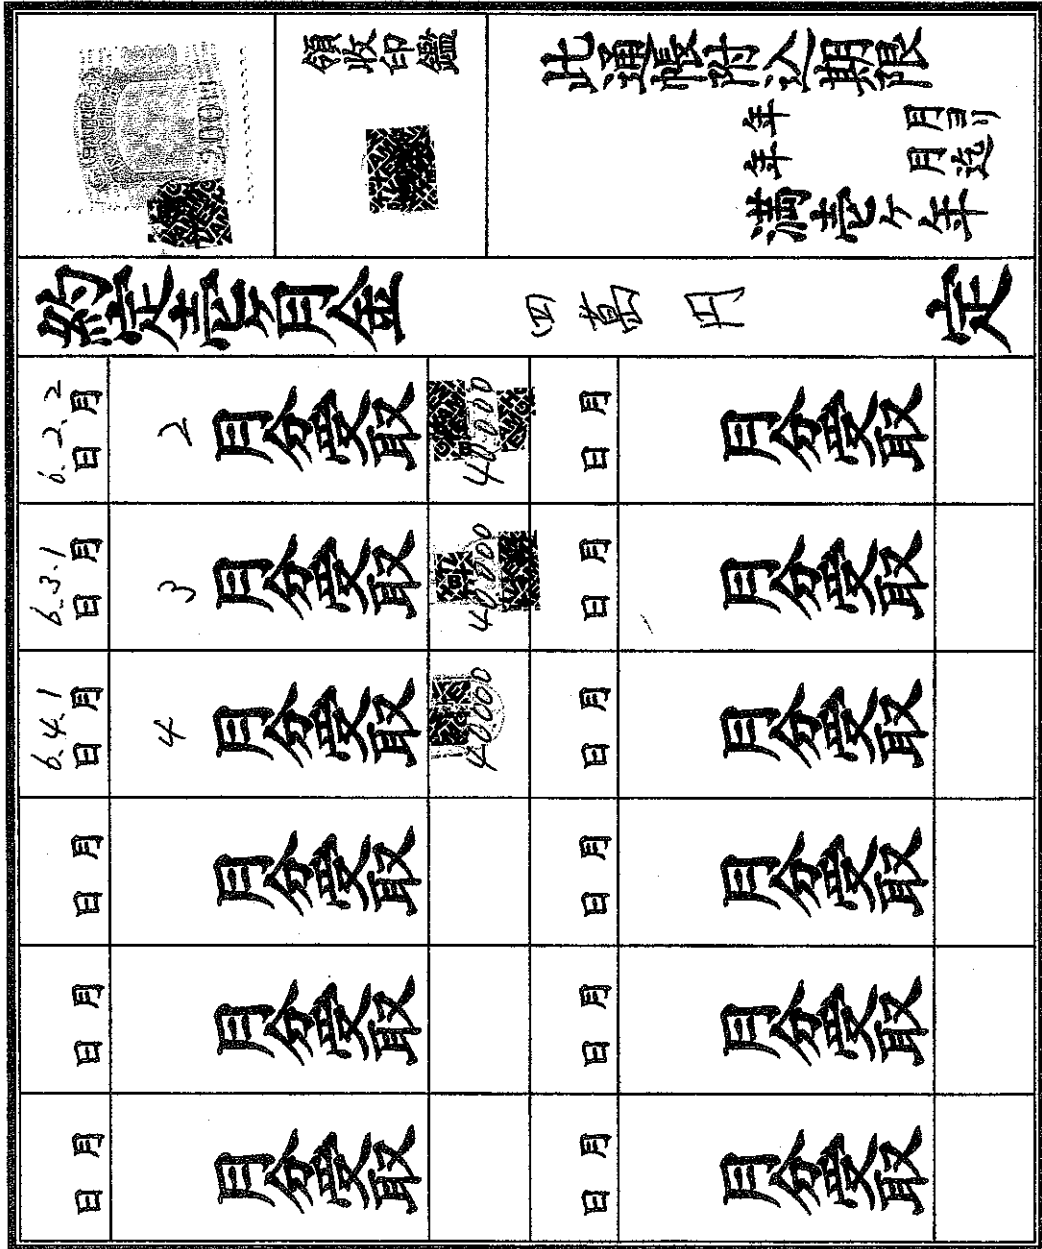 此通帳附込期限
年 月ヨリ
年 月迄
満壱ヶ年
領收印鑑
200円
約定壱ヶ月金 四萬円 定
6.2.2 月 日 2 月分受取 40000
6.3.1 月 日 3 月分受取 40000
6.4.1 月 日 4 月分受取 40000
月 日 月分受取
月 日 月分受取
月 日 月分受取
月 日 月分受取
月 日 月分受取
月 日 月分受取
月 日 月分受取
月 日 月分受取
月 日 月分受取